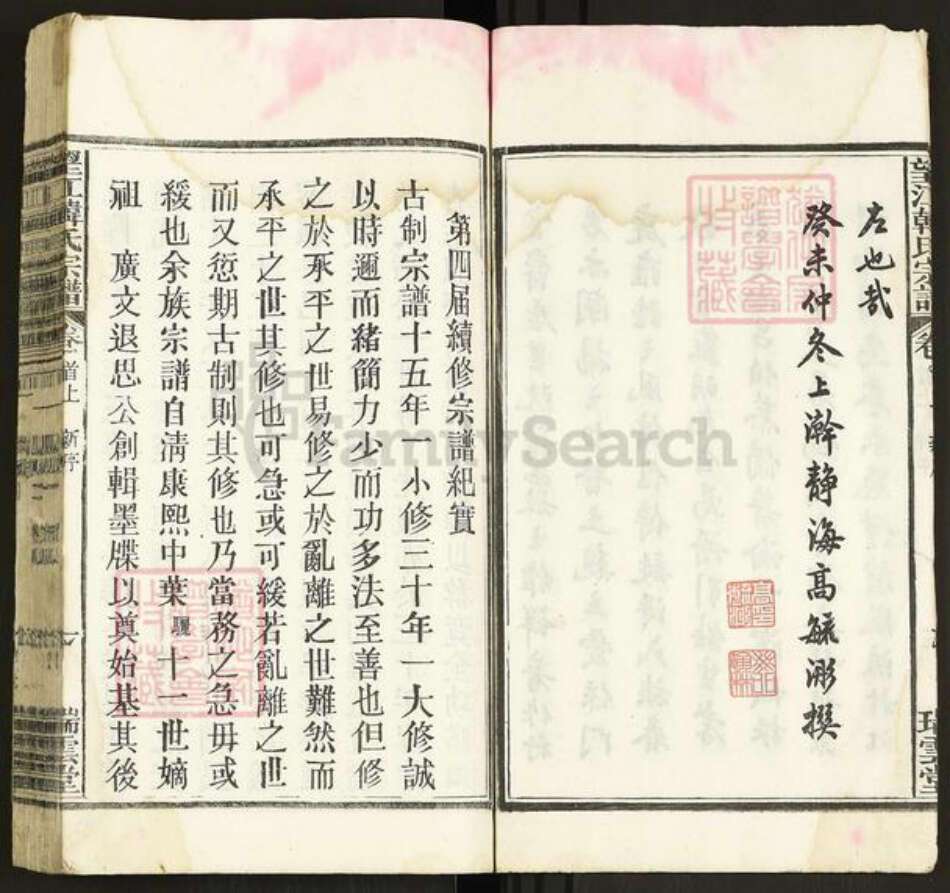 左也哉
癸未仲冬上澣静海高毓浵撰
第四届續修宗譜紀實
古制宗譜十五年一小修三十年一大修誠
以時邇而緒簡力少而功多法至善也但修
之於承平之世易修之於亂離之世難然而
承平之世其修也可急或可緩若亂離之世
而又愆期古制則其修也乃當務之急毋或
緩也余族宗譜自淸康熙中葉驪十一世嫡
祖 廣文退思公創輯墨牒以奠始基其後
望江韓氏宗譜
瑞雲堂
FamilySearch